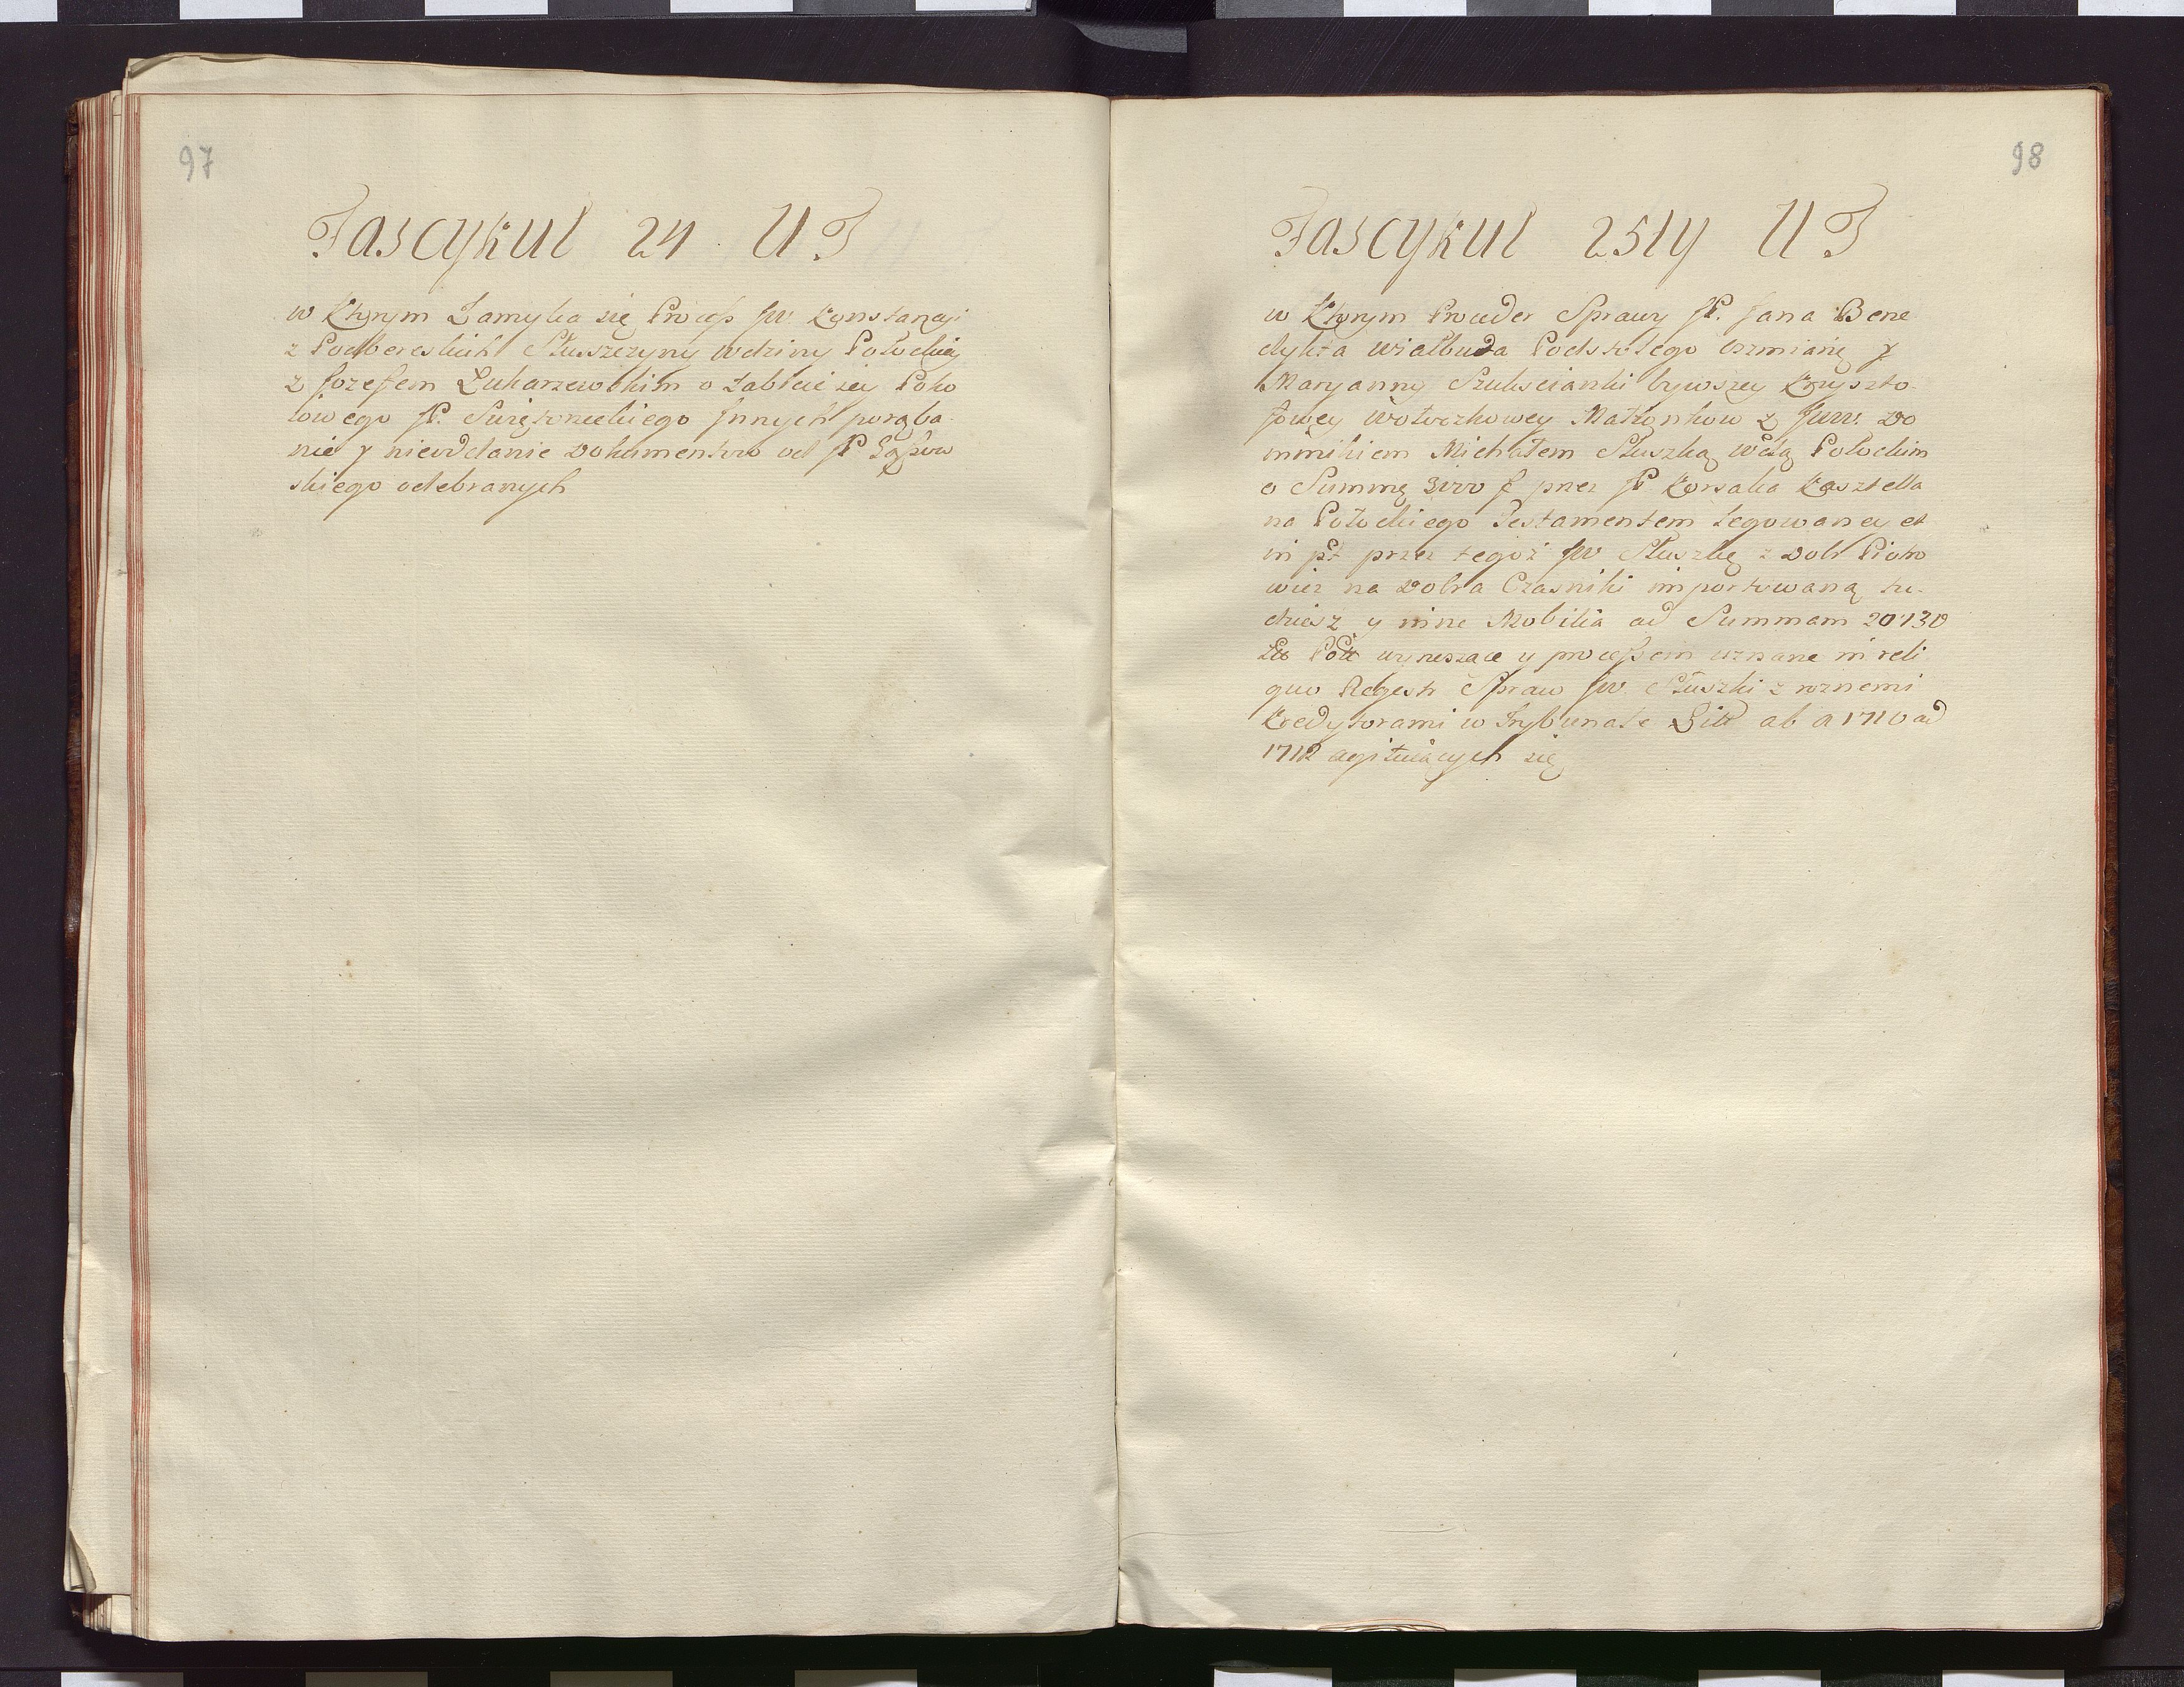 97
Fascykuł 24 U T
w Ktorym Zamyka się Process JW Konstancyi
z Podbereskich Słuszczyny wdziny Połockiey
z Jozefem Lukarzewskim o zabicie iey Poko
iowego JP. Swięszneckiego Innych porąba
nie y nieoddanie Dokumentow od JP
skiego odebranych
98
Fascykuł 25ty U T
w Ktorym Proceder Sprawy JP. Jana Bene
dykta Wiałbuda Podstolego Oszmianę y
Maryanny Szukscianki bywszey Krzyszto-
fowey Wołodzkowey Małżonkow z JWW. Do
minikiem Michałem Słuszką Wdą Połockim
o Summę 3000 f przez JP Korsaka Kasztella
na Połockiego Testamentem legowaney et
in pt przez tegoż JW Słuszkę z Dobr Piotro
wicz na Dobra Czasniki importowaną tu-
dziesz y inne Mobilia ad Summam 20730
Złł Poll wynoszące y processem uznane in reli
quo Regestr Spraw JW Słuszki z roznemi
Kredytorami w Trybunale Litt ab a 1710 ad
1712 agituiących się